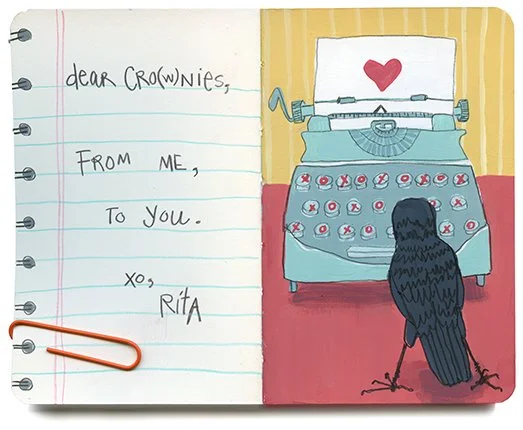 dear Cro(w)nies,
FROM ME,
TO YOU.
xo,
RitA